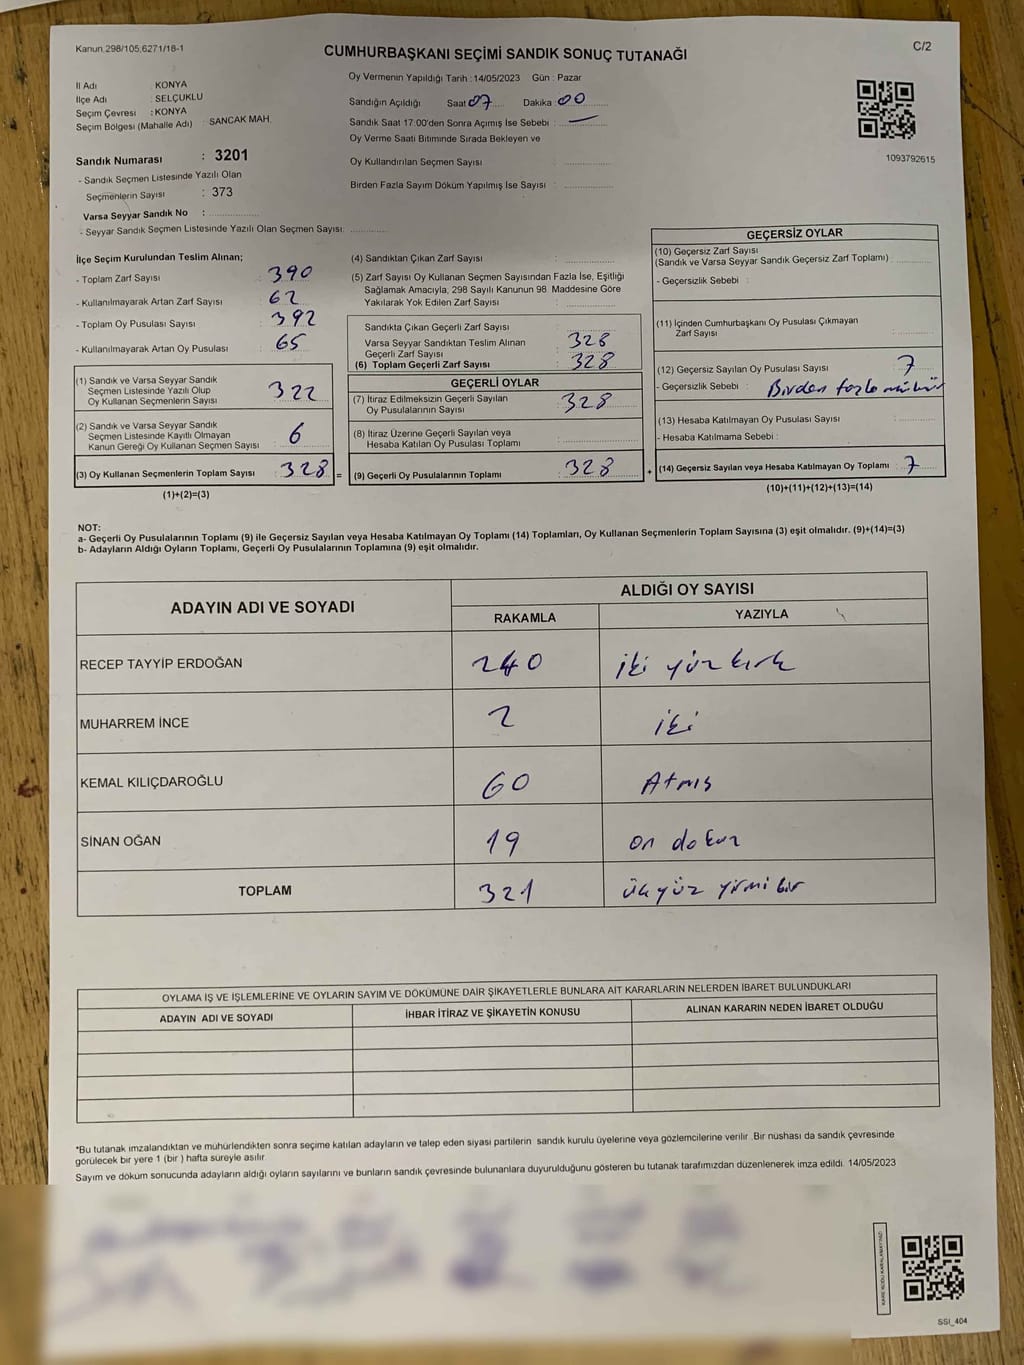 Kanun,298/105,6271/18-1
CUMHURBAŞKANI SEÇİMİ SANDIK SONUÇ TUTANAĞI
C/2
İl Adı KONYA
İlçe Adı : SELÇUKLU
Seçim Çevresi : KONYA
Seçim Bölgesi (Mahalle Adı) : SANCAK MAH.
Sandık Numarası : 3201
- Sandık Seçmen Listesinde Yazılı Olan
Seçmenlerin Sayısı : 373
Varsa Seyyar Sandık No :
- Seyyar Sandık Seçmen Listesinde Yazılı Olan Seçmen Sayısı:
Oy Vermenin Yapıldığı Tarih :14/05/2023 Gün : Pazar
Sandığın Açıldığı Saat 07 Dakika 00
Sandık Saat 17:00'den Sonra Açımış İse Sebebi : —
Oy Verme Saati Bitiminde Sırada Bekleyen ve
Oy Kullandırılan Seçmen Sayısı :
Birden Fazla Sayım Döküm Yapılmış İse Sayısı :
1093792615
İlçe Seçim Kurulundan Teslim Alınan;
- Toplam Zarf Sayısı : 390
- Kullanılmayarak Artan Zarf Sayısı : 62
- Toplam Oy Pusulası Sayısı : 392
- Kullanılmayarak Artan Oy Pusulası : 65
(1) Sandık ve Varsa Seyyar Sandık
Seçmen Listesinde Yazılı Olup
Oy Kullanan Seçmenlerin Sayısı : 322
(2) Sandık ve Varsa Seyyar Sandık
Seçmen Listesinde Kayıtlı Olmayan
Kanun Gereği Oy Kullanan Seçmen Sayısı : 6
(3) Oy Kullanan Seçmenlerin Toplam Sayısı : 328 =
(1)+(2)=(3)
(4) Sandıktan Çıkan Zarf Sayısı :
(5) Zarf Sayısı Oy Kullanan Seçmen Sayısından Fazla İse, Eşitliği
Sağlamak Amacıyla, 298 Sayılı Kanunun 98. Maddesine Göre
Yakılarak Yok Edilen Zarf Sayısı :
Sandıkta Çıkan Geçerli Zarf Sayısı
Varsa Seyyar Sandıktan Teslim Alınan
Geçerli Zarf Sayısı : 328
(6) Toplam Geçerli Zarf Sayısı : 328
GEÇERLİ OYLAR
(7) İtiraz Edilmeksizin Geçerli Sayılan
Oy Pusulalarının Sayısı : 328
(8) İtiraz Üzerine Geçerli Sayılan veya
Hesaba Katılan Oy Pusulası Toplamı :
(9) Geçerli Oy Pusulalarının Toplamı : 328 +
GEÇERSİZ OYLAR
(10) Geçersiz Zarf Sayısı
(Sandık ve Varsa Seyyar Sandık Geçersiz Zarf Toplamı) :
- Geçersizlik Sebebi :
(11) İçinden Cumhurbaşkanı Oy Pusulası Çıkmayan
Zarf Sayısı :
(12) Geçersiz Sayılan Oy Pusulası Sayısı : 7
- Geçersizlik Sebebi : Birden fazla mühür
(13) Hesaba Katılmayan Oy Pusulası Sayısı :
- Hesaba Katılmama Sebebi :
(14) Geçersiz Sayılan veya Hesaba Katılmayan Oy Toplamı : 7
(10)+(11)+(12)+(13)=(14)
NOT:
a- Geçerli Oy Pusulalarının Toplamı (9) ile Geçersiz Sayılan veya Hesaba Katılmayan Oy Toplamı (14) Toplamları, Oy Kullanan Seçmenlerin Toplam Sayısına (3) eşit olmalıdır. (9)+(14)=(3)
b- Adayların Aldığı Oyların Toplamı, Geçerli Oy Pusulalarının Toplamına (9) eşit olmalıdır.
ADAYIN ADI VE SOYADI
ALDIĞI OY SAYISI
RAKAMLA YAZIYLA
RECEP TAYYİP ERDOĞAN 240 iki yüz kırk
MUHARREM İNCE 2 iki
KEMAL KILIÇDAROĞLU 60 Atmış
SİNAN OĞAN 19 on dokuz
TOPLAM 321 üçyüz yirmi bir
OYLAMA İŞ VE İŞLEMLERİNE VE OYLARIN SAYIM VE DÖKÜMÜNE DAİR ŞİKAYETLERLE BUNLARA AİT KARARLARIN NELERDEN İBARET BULUNDUKLARI
ADAYIN ADI VE SOYADI İHBAR İTİRAZ VE ŞİKAYETİN KONUSU ALINAN KARARIN NEDEN İBARET OLDUĞU
*Bu tutanak imzalandıktan ve mühürlendikten sonra seçime katılan adayların ve talep eden siyasi partilerin sandık kurulu üyelerine veya gözlemcilerine verilir. Bir nüshası da sandık çevresinde
görülecek bir yere 1 (bir ) hafta süreyle asılır.
Sayım ve döküm sonucunda adayların aldığı oyların sayılarını ve bunların sandık çevresinde bulunanlara duyurulduğunu gösteren bu tutanak tarafımızdan düzenlenerek imza edildi. 14/05/2023
KARE KODU KARALAMAYINIZ!
SSI_404